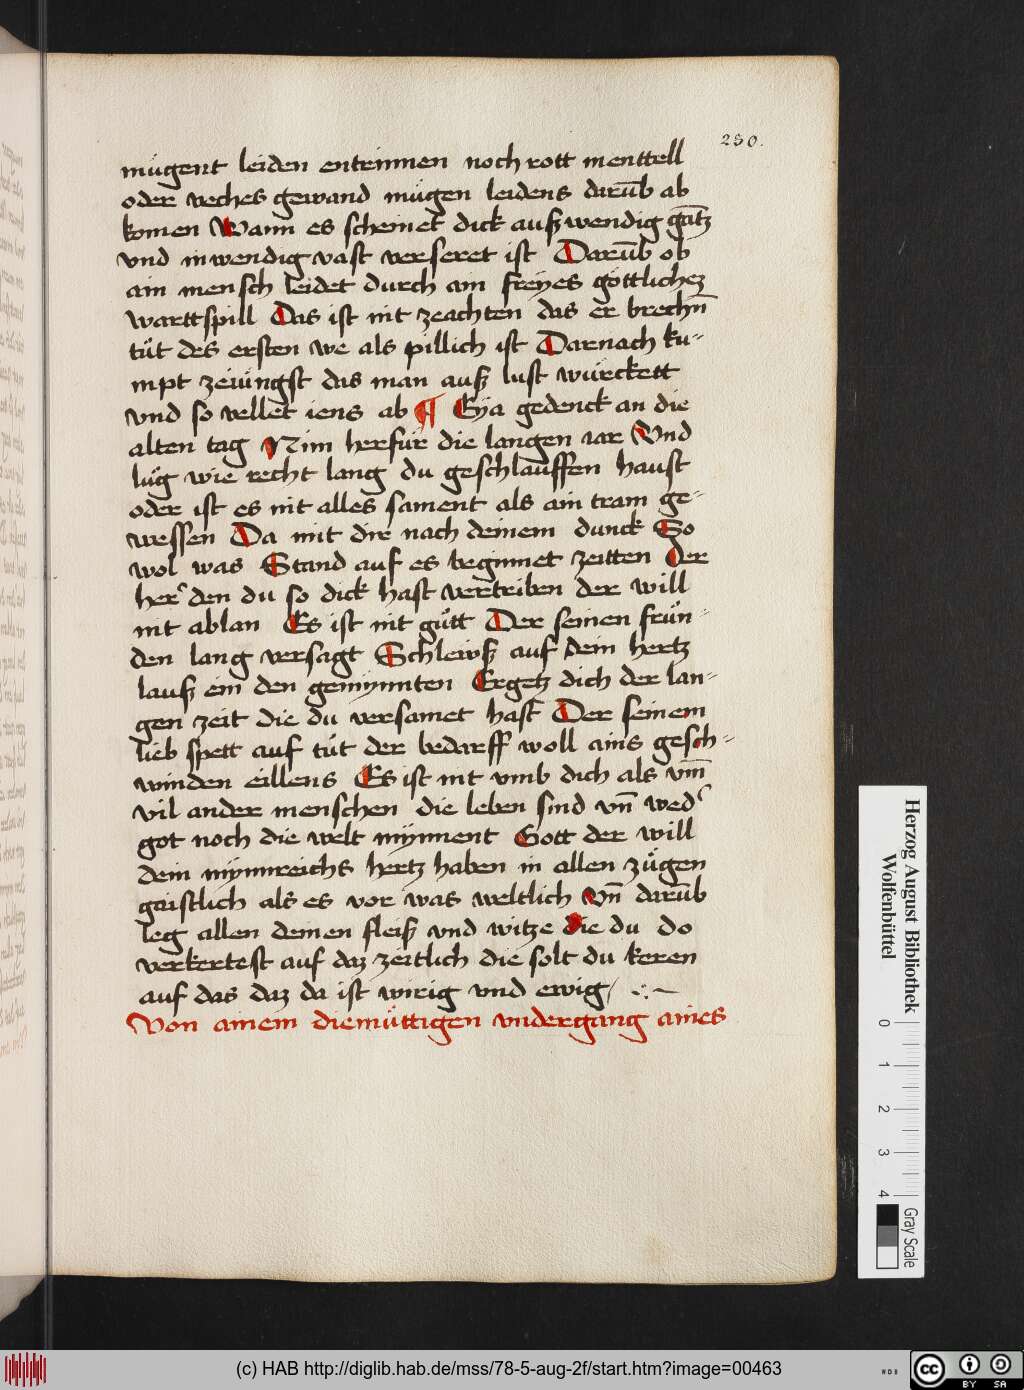 230.
mùgent leiden entrinnen noch rott menttell
oder veches gewand mùgen leidens darūb ab
komen Wann es scheinet dick aufzwendig gātz
vnd inwendig vast verseret ist Darūb ob
ain mensch leidet durch ain freyes göttlichez
warttspill Das ist nit zeachten das er brechn̄
tùt des ersten we als pillich ist Darnach ku-
mpt zeiùngst das man aufz lust wùrckett
vnd so vellet iens ab ¶ Eya gedenck an die
alten tag Nim herfùr die langen iar Vnd
lùg wie recht lang du geschlauffen haust
oder ist es nit alles sament als ain tram ge-
wessen Da mit dir nach deinem dunck So
wol was Stand auf es beginnet zeitten Der
her' den du so dick hast vertriben der will
nit ablan Es ist nit gùtt Der seinen frùn-
den lang versagt Schleiufz auf dein hertz
laufz ein den gemynnten Ergetz dich der lan-
gen zeit die du versamet hast Der seinem
lieb spett auf tùt der bedarff woll ains gesch-
winden eillens Es ist nit vmb dich als vm̄
vil ander menschen die leben sind vn̄ wed'
got noch die welt mynnent Gott der will
dein mynnreichs hertz haben in allen zùgen
gaistlich als es vor was weltlich Vn̄ darūb
leg allen deinen fleifz vnd witze die du do
verkertest auf daz zeitlich die solt du keren
auf das daz da ist wirig vnd ewig
Von ainem diemùttigen vndergang aines
Herzog August Bibliothek
Wolfenbüttel
0 1 2 3 4
Gray Scale
(c) HAB http://diglib.hab.de/mss/78-5-aug-2f/start.htm?image=00463
WDB
cc BY SA